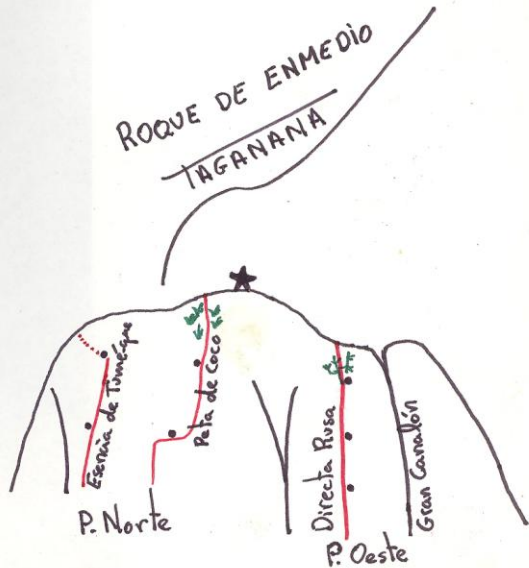 ROQUE DE ENMEDIO
TAGANANA
Esencia de Tuméque
Peta de Coco
Directa Rusa
Gran Canalón
P. Norte
P. Oeste